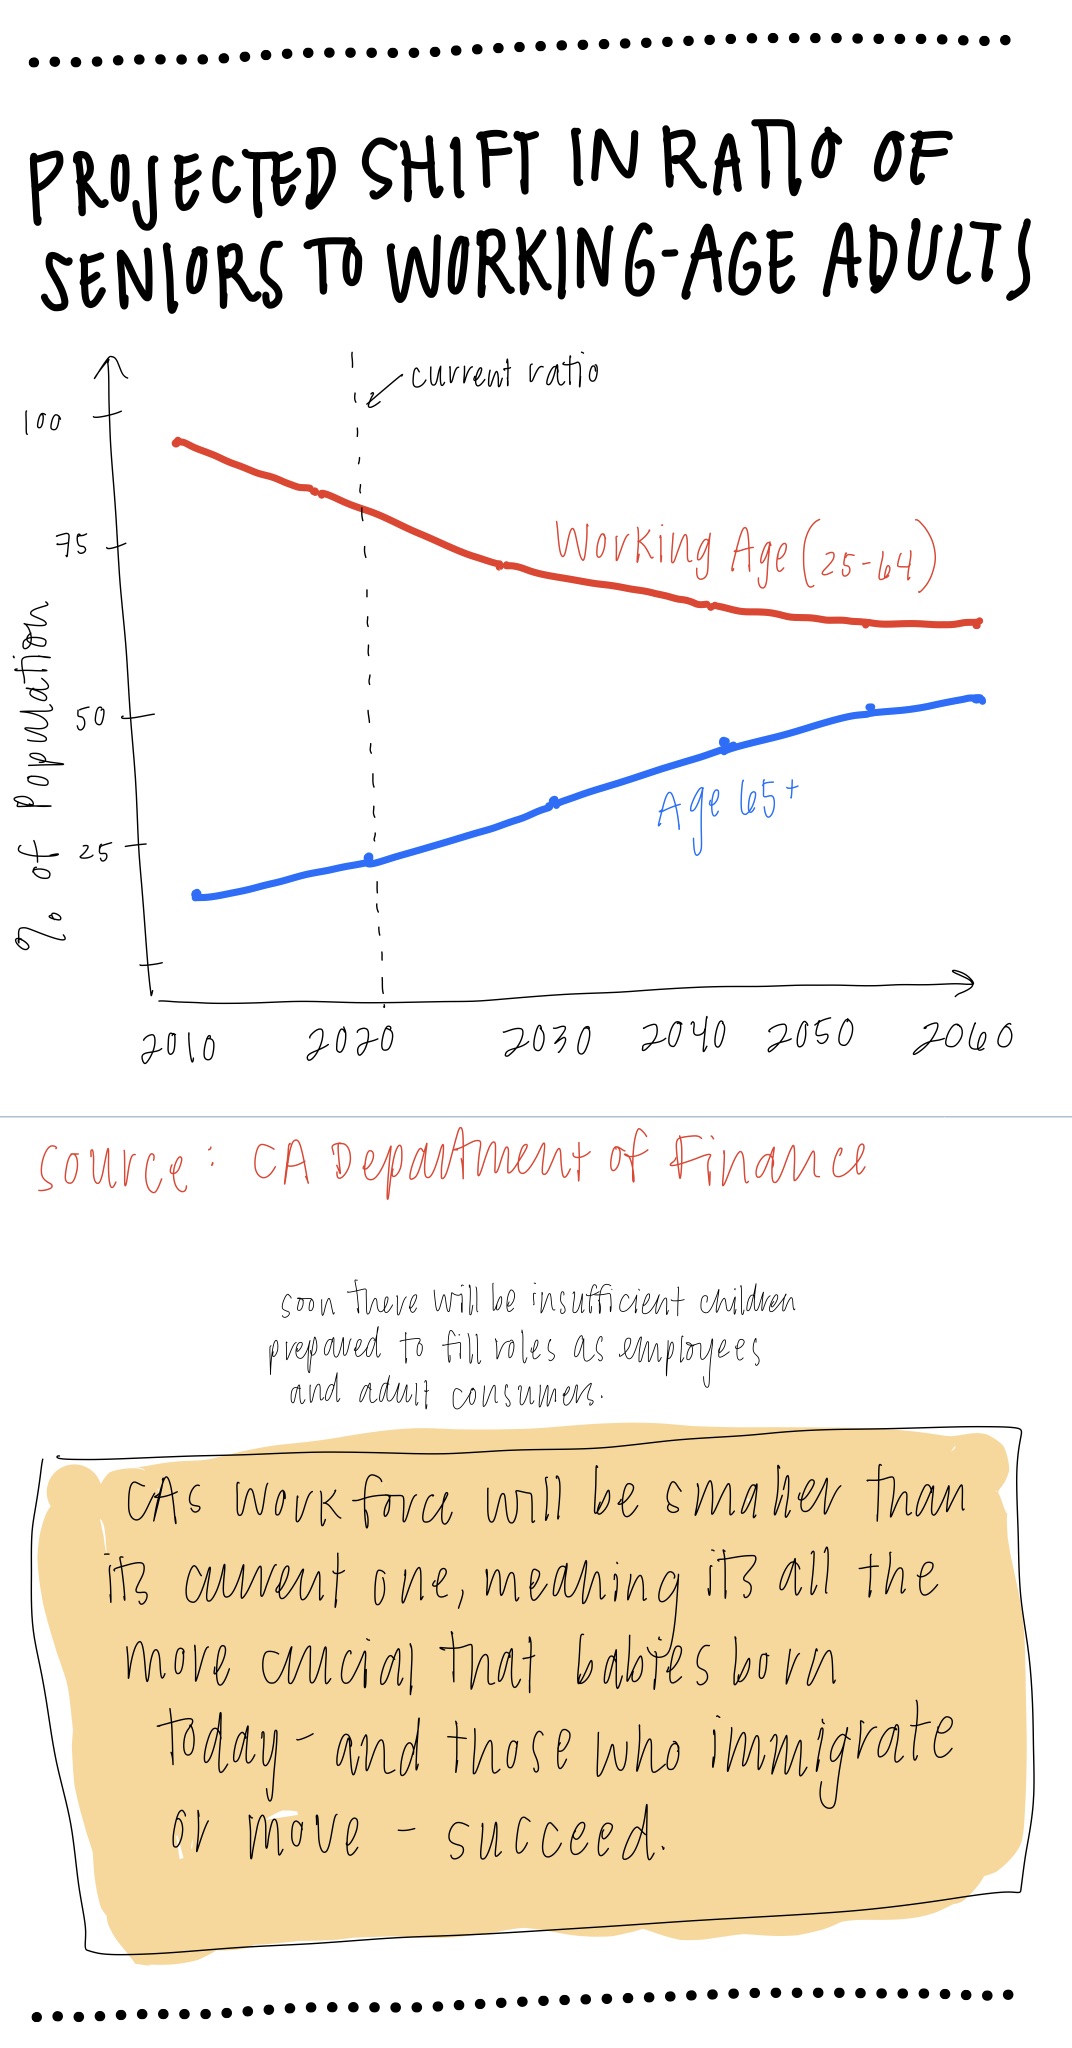 PROJECTED SHIFT IN RATIO OF
SENIORS TO WORKING-AGE ADULTS
current ratio
100
75
50
25
% of Population
Working Age (25-64)
Age 65+
2010 2020 2030 2040 2050 2060
source: CA Department of Finance
soon there will be insufficient children
prepared to fill roles as employees
and adult consumers.
CAs workforce will be smaller than
its current one, meaning its all the
more crucial that babies born
today - and those who immigrate
or move - succeed.